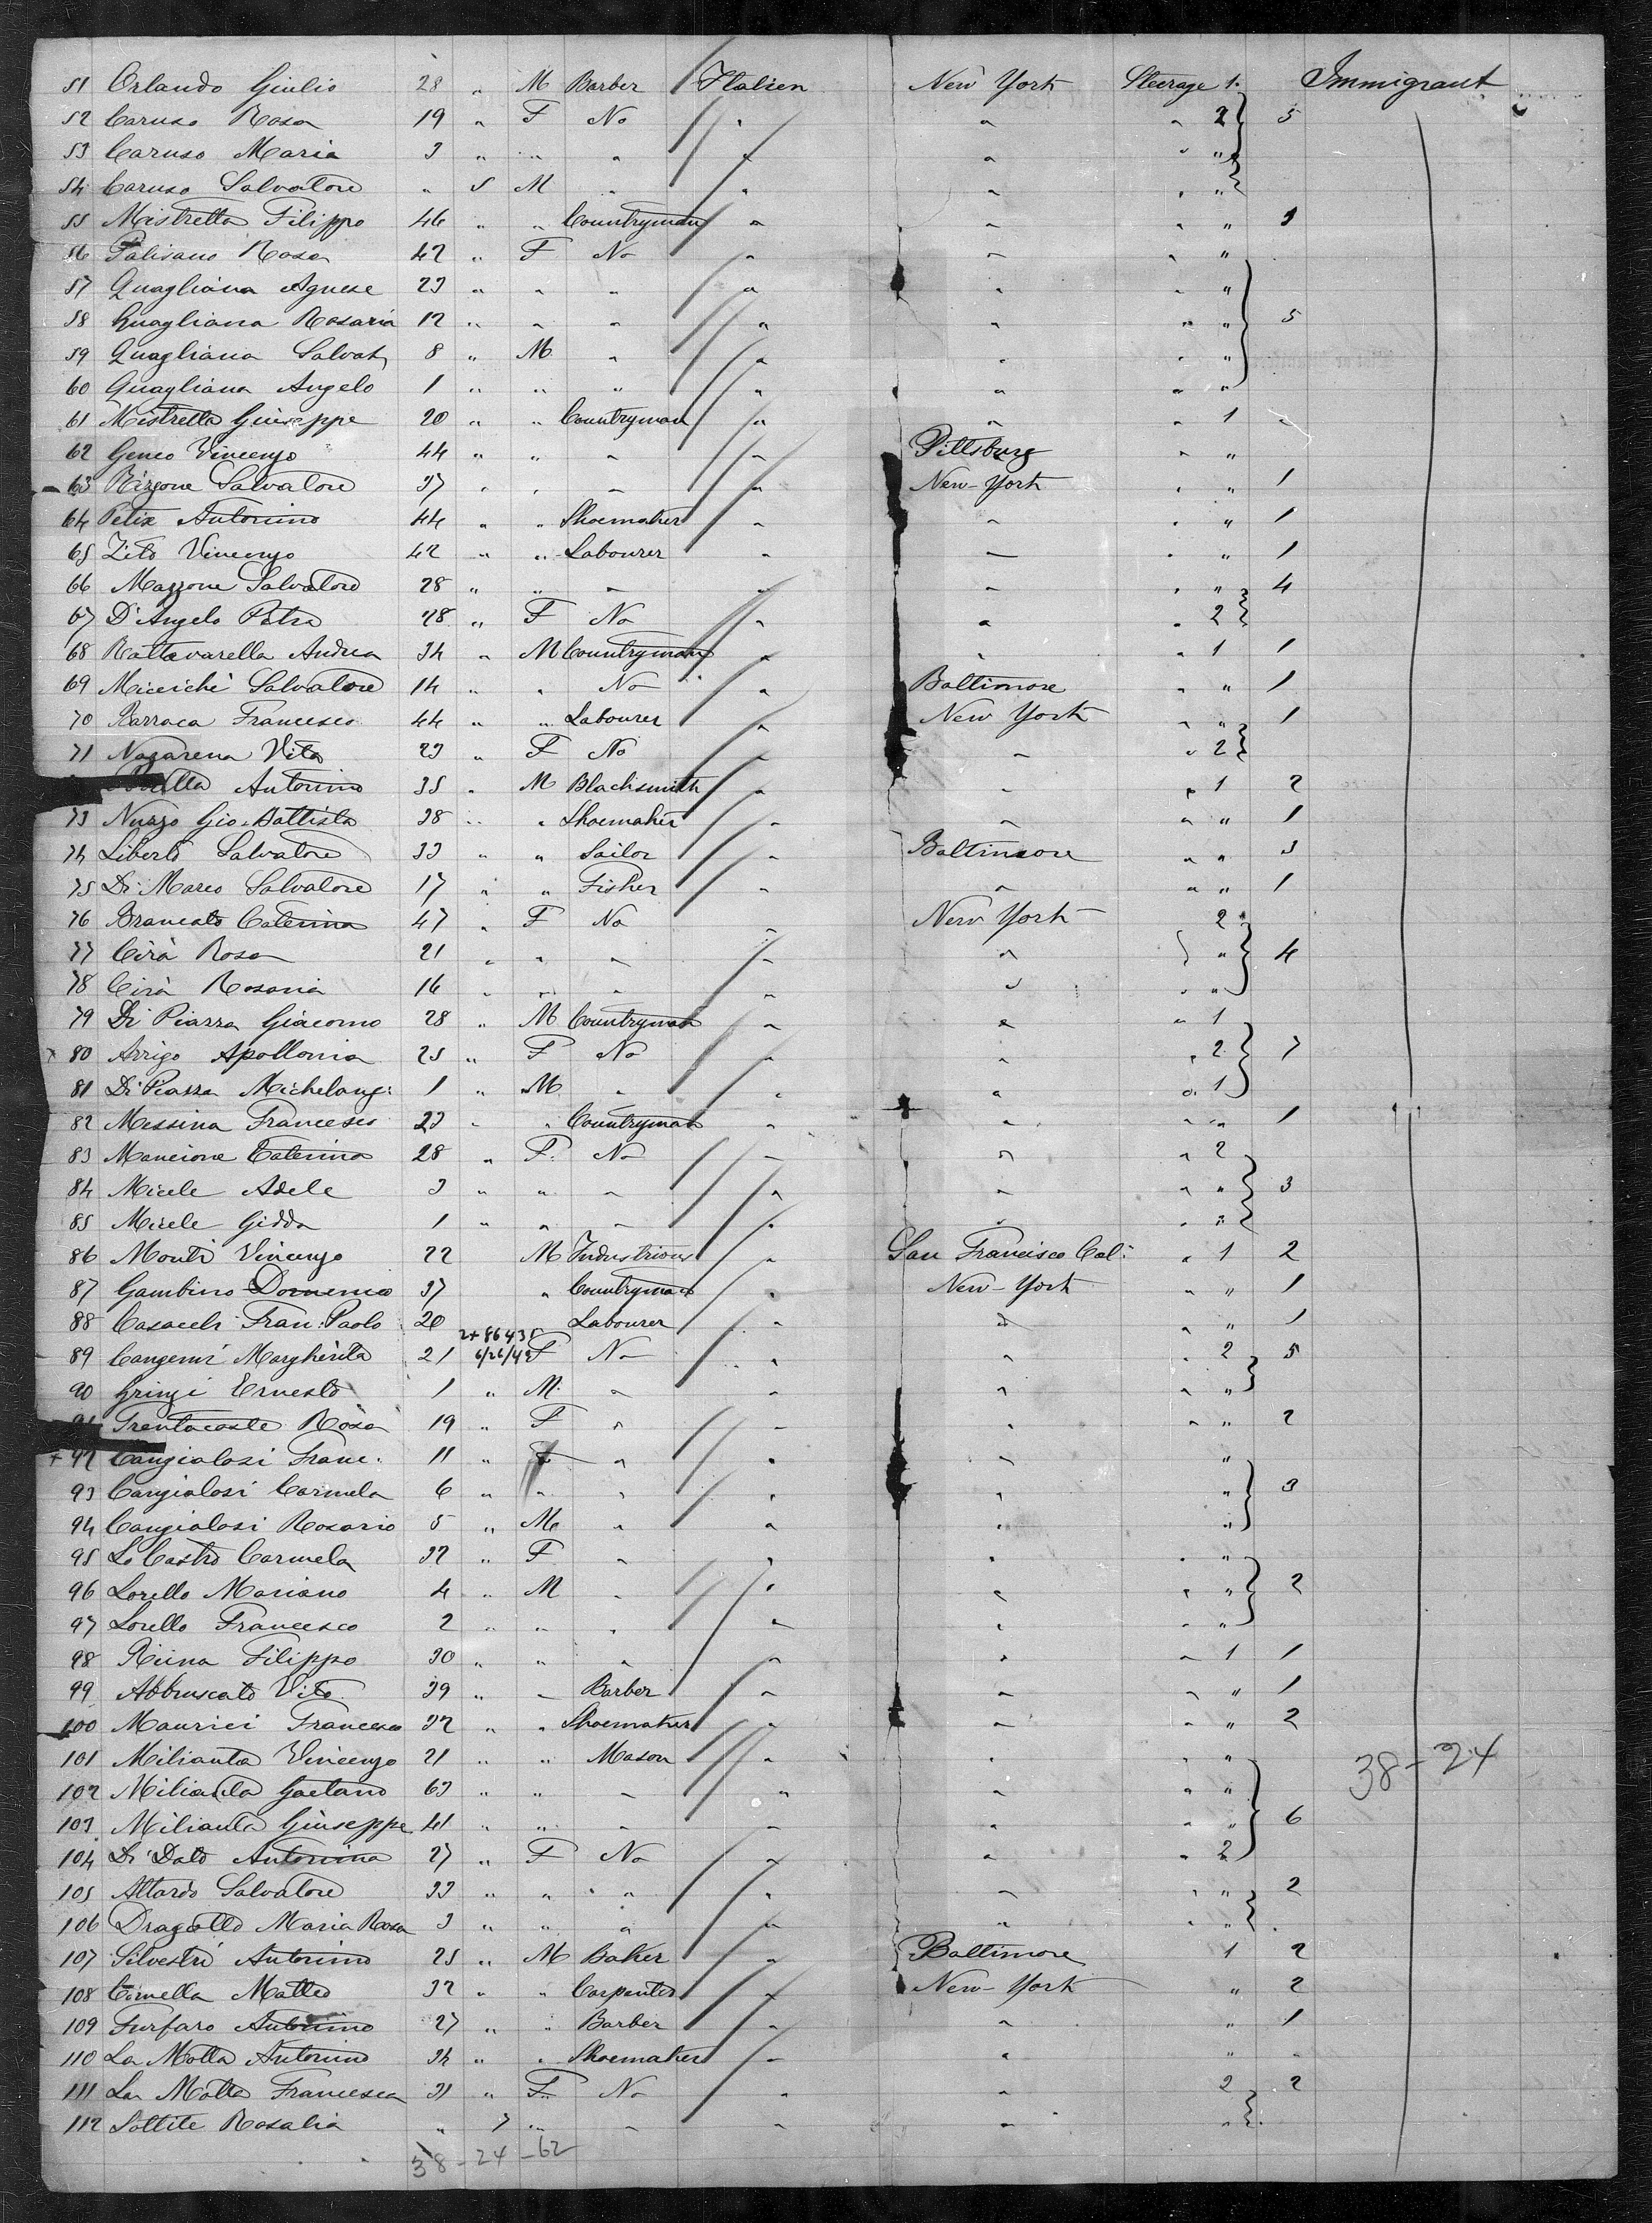 51 Orlando Giulio 28 " M Barber Italien New York Steerage 1. Immigrant
52 Caruso Rosa 19 " F No " " " 2 5
53 Caruso Maria 3 " " " " " " "
54 Caruso Salvatore " 5 M " " " " "
55 Mistretta Filippo 46 " " Countryman " " " " 1
56 Palisano Rosa 42 " F No " " " "
57 Quagliana Agnese 23 " " " " " " "
58 Quagliana Rosaria 12 " " " " " " " 5
59 Quagliana Salvat. 8 " M " " " " "
60 Quagliana Angelo 1 " " " " " " "
61 Mistretta Giuseppe 20 " " Countryman " " " 1 "
62 Genco Vincenzo 44 " " " " Pittsburg " "
63 Rizzone Salvatore 37 " " " " New-York " " 1
64 Pelix Antonino 44 " " Shoemaker " " " " 1
65 Zito Vincenzo 42 " " Labourer " " " " 1
66 Mazzone Salvatore 28 " " " " " " " 4
67 D'Angelo Petra 28 " F No " " " 2
68 Rattavarella Andrea 34 " M Countryman " " " 1 1
69 Micichi Salvatore 14 " " No " Baltimore " " 1
70 Barraca Francesco 44 " " Labourer " New York " " 1
71 Nazarena Vita 23 " F No " " " 2
Antonino 35 " M Blacksmith " " " 1 2
73 Nuzzo Gio. Battista 38 " " Shoemaker " " " " 1
74 Liberto Salvatore 33 " " Sailor " Baltimore " " 3
75 Di Marco Salvatore 17 " " Fisher " " " " 1
76 Brancato Caterina 47 " F No " New York 2
77 Cirà Rosa 21 " " " " " " 4
78 Cirà Rosaria 16 " " " " " " "
79 Di Piazza Giacomo 28 " M Countryman " " " 1
80 Arrigo Apollonia 25 " F No " " " 2 7
81 Di Piazza Michelang: 1 " M " " " " 1
82 Messina Francesco 23 " " Countryman " " " " 1
83 Mancione Caterina 28 " F. No " " " 2
84 Micele Adele 3 " " " " " " " 3
85 Micele Gidda 1 " " " " " " "
86 Monti Vincenzo 22 M Industrious " San Francisco Cal: " 1 2
87 Gambino Domenico 37 " Countryman " New-York " " 1
88 Casacch Fran: Paolo 20 Labourer " " " 1
2+86435
89 Cangemi Margherita 21 6/26/45 F No " " " 2 5
90 Grinzi Ernesto 1 " M. " " " " "
91 Trentacoste Rosa 19 " F " " " " " 2
+ 92 Cangialosi Franc. 11 " F " " " "
93 Cangialosi Carmela 6 " " " " " " 3
94 Cangialosi Rosario 5 " M " " " "
95 Lo Castro Carmela 32 " F " " " " "
96 Lorello Mariano 4 " M " " " " " 2
97 Lorello Francesco 2 " " " " " " "
98 Riina Filippo 30 " " " " " " 1 1
99 Abbruscato Vito 39 " " Barber " " " " 1
100 Maurici Francesco 32 " " Shoemaker " " " " 2
101 Milianta Vincenzo 21 " " Mason " " " "
38-24
102 Milianta Gaetano 63 " " " " " " "
103 Milianta Giuseppe 41 " " " " " " " 6
104 Di Dato Antonina 27 " F No " " " 2
105 Altardo Salvatore 33 " " " " " " " 2
106 Dragotto Maria Rosa 3 " " " " " " "
107 Silvestri Antonino 25 " M Baker " Baltimore 1 2
108 Cimella Matteo 32 " " Carpenter " New-York " 2
109 Furfaro Antonino 27 " " Barber " " " 1
110 La Motta Antonino 34 " " Shoemaker " " " "
111 La Motta Francesca 31 " F. No " " 2 2
112 Sottile Rosalia " 7 " " " " "
38-24-62